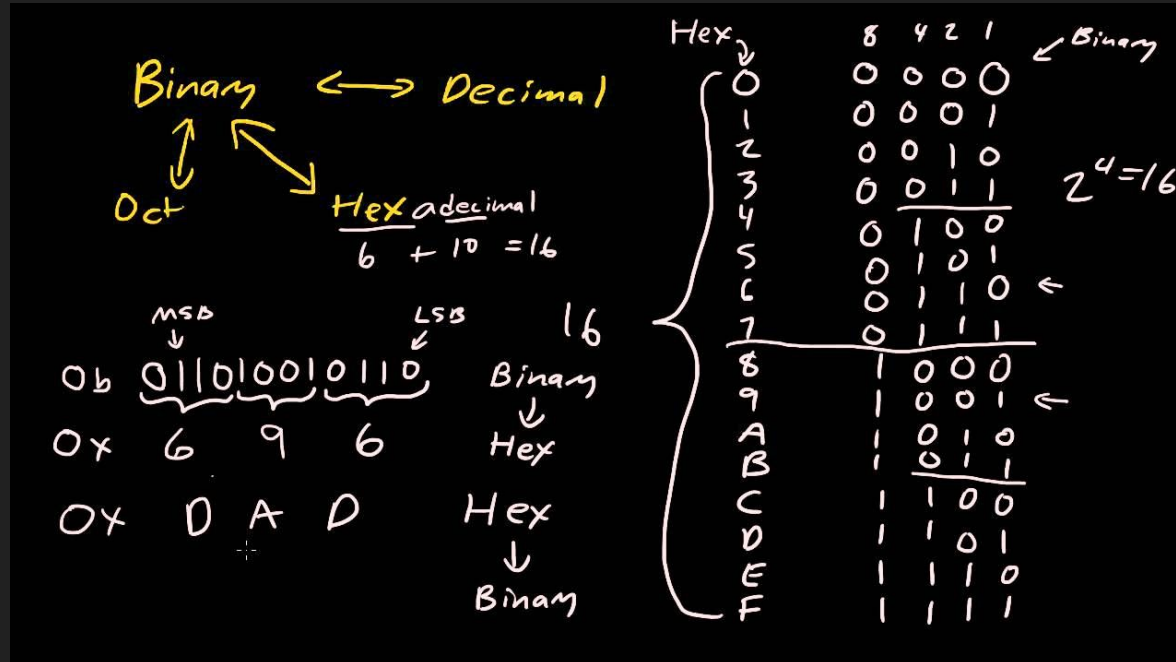 Binary ↔ Decimal
Oct
Hexadecimal
6 + 10 = 16
MSB LSB
0b 011010010110 Binary
↓
0x 6 9 6 Hex
0x D A D Hex
↓
Binary
16
Hex 8 4 2 1 Binary
0 0 0 0 0
1 0 0 0 1
2 0 0 1 0
3 0 0 1 1
2^4=16
4 0 1 0 0
5 0 1 0 1
6 0 1 1 0 ←
7 0 1 1 1
8 1 0 0 0
9 1 0 0 1 ←
A 1 0 1 0
B 1 0 1 1
C 1 1 0 0
D 1 1 0 1
E 1 1 1 0
F 1 1 1 1